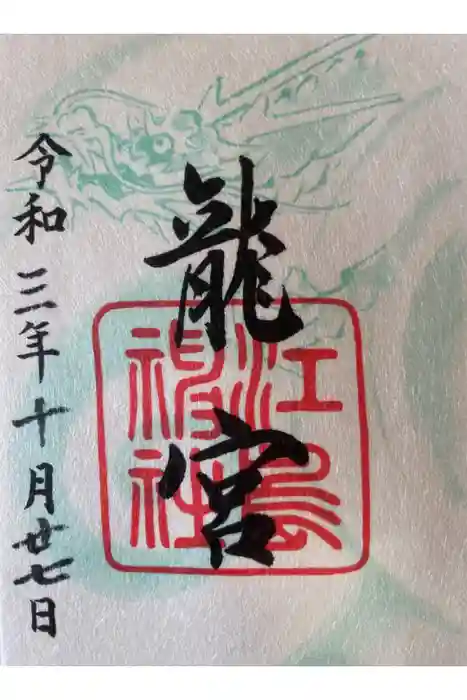 龍宮
江島神社
令和三年十月廿七日